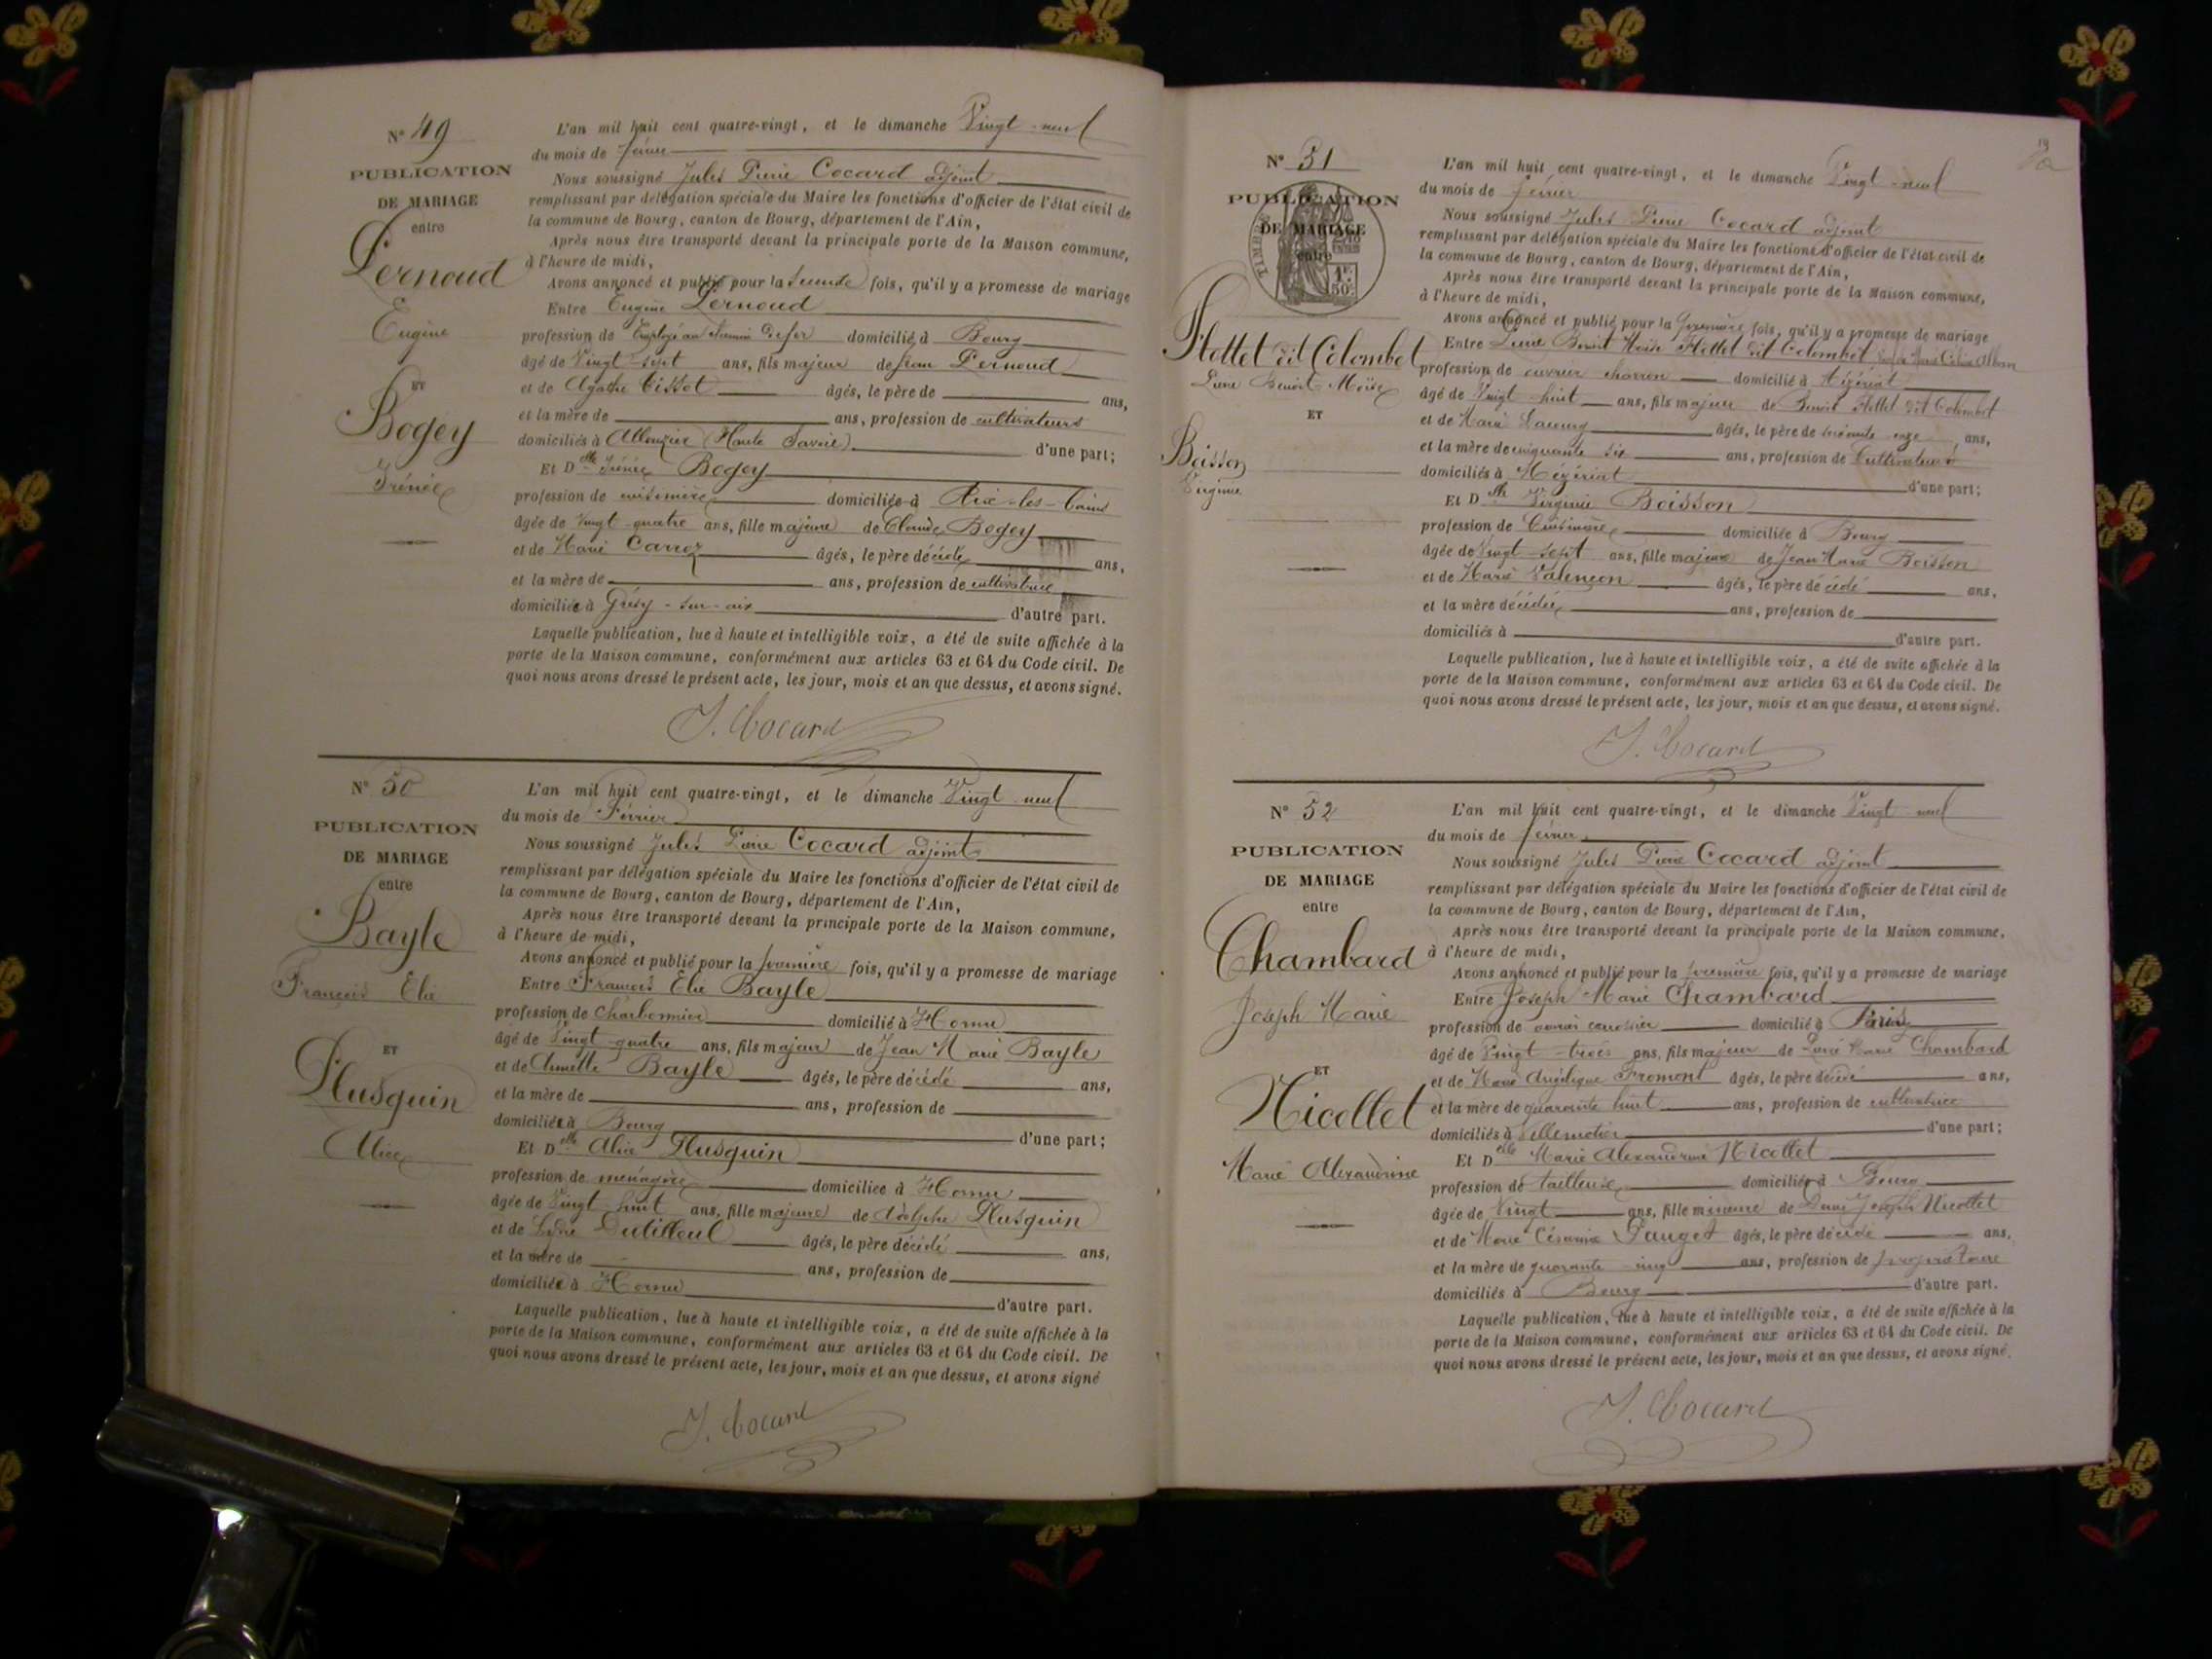 N° 49
PUBLICATION
DE MARIAGE
entre
Pernoud
Eugène
ET
Bogey
Irénée
L'an mil huit cent quatre-vingt, et le dimanche Vingt-neuf
du mois de février
Nous soussigné Jules Pierre Cocard adjoint
remplissant par délégation spéciale du Maire les fonctions d'officier de l'état civil de
la commune de Bourg, canton de Bourg, département de l'Ain,
Après nous être transporté devant la principale porte de la Maison commune,
à l'heure de midi,
Avons annoncé et publié pour la seconde fois, qu'il y a promesse de mariage
Entre Eugène Pernoud
profession de Employé au chemin de fer domicilié à Bourg
âgé de Vingt-sept ans, fils majeur de Jean Pernoud
et de Agathe Tissot âgés, le père de ans,
et la mère de ans, profession de cultivateurs
domiciliés à Allonzier (Haute Savoie) d'une part;
Et Dlle Irénée Bogey
profession de cuisinière domiciliée à Aix-les-bains
âgée de Vingt-quatre ans, fille majeure de Claude Bogey
et de Marie Carroz âgés, le père décédé ans,
et la mère de ans, profession de cultivatrice
domiciliée à Grésy-sur-aix d'autre part.
Laquelle publication, lue à haute et intelligible voix, a été de suite affichée à la
porte de la Maison commune, conformément aux articles 63 et 64 du Code civil. De
quoi nous avons dressé le présent acte, les jour, mois et an que dessus, et avons signé.
J. Cocard
N° 50
PUBLICATION
DE MARIAGE
entre
Bayle
François Elie
ET
Plusquin
Alice
L'an mil huit cent quatre-vingt, et le dimanche Vingt-neuf
du mois de Février
Nous soussigné Jules Pierre Cocard adjoint
remplissant par délégation spéciale du Maire les fonctions d'officier de l'état civil de
la commune de Bourg, canton de Bourg, département de l'Ain,
Après nous être transporté devant la principale porte de la Maison commune,
à l'heure de midi,
Avons annoncé et publié pour la première fois, qu'il y a promesse de mariage
Entre François Elie Bayle
profession de Charbonnier domicilié à Hornu
âgé de Vingt-quatre ans, fils majeur de Jean Marie Bayle
et de Annette Bayle âgés, le père décédé ans,
et la mère de ans, profession de
domiciliée à Bourg d'une part;
Et Dlle Alice Plusquin
profession de ménagère domiciliée à Hornu
âgée de Vingt-huit ans, fille majeure de Adolphe Plusquin
et de Lydie Dutilleul âgés, le père décédé ans,
et la mère de ans, profession de
domiciliée à Hornu d'autre part.
Laquelle publication, lue à haute et intelligible voix, a été de suite affichée à la
porte de la Maison commune, conformément aux articles 63 et 64 du Code civil. De
quoi nous avons dressé le présent acte, les jour, mois et an que dessus, et avons signé
J. Cocard
19
N° 51
PUBLICATION
DE MARIAGE
entre
TIMBRE
1F.
50c.
Flottet dit Colombet
Pierre Benoit Moïse
ET
Boisson
Virginie
L'an mil huit cent quatre-vingt, et le dimanche Vingt-neuf
du mois de février
Nous soussigné Jules Pierre Cocard adjoint
remplissant par délégation spéciale du Maire les fonctions d'officier de l'état civil de
la commune de Bourg, canton de Bourg, département de l'Ain,
Après nous être transporté devant la principale porte de la Maison commune,
à l'heure de midi,
Avons annoncé et publié pour la première fois, qu'il y a promesse de mariage
Entre Pierre Benoit Moïse Flottet dit Colombet
profession de ouvrier charron domicilié à Mézériat
âgé de Vingt-huit ans, fils majeur de Benoit Flottet dit Colombet
et de Marie âgés, le père de soixante-onze ans,
et la mère de cinquante-six ans, profession de Cultivateurs
domiciliés à Mézériat d'une part;
Et Dlle Virginie Boisson
profession de Cuisinière domiciliée à Bourg
âgée de Vingt-sept ans, fille majeure de Jean Marie Boisson
et de Marie Valençon âgés, le père décédé ans,
et la mère décédée ans, profession de
domiciliés à d'autre part.
Laquelle publication, lue à haute et intelligible voix, a été de suite affichée à la
porte de la Maison commune, conformément aux articles 63 et 64 du Code civil. De
quoi nous avons dressé le présent acte, les jour, mois et an que dessus, et avons signé.
J. Cocard
N° 52
PUBLICATION
DE MARIAGE
entre
Chambard
Joseph Marie
ET
Nicollet
Marie Alexandrine
L'an mil huit cent quatre-vingt, et le dimanche Vingt-neuf
du mois de février
Nous soussigné Jules Pierre Cocard adjoint
remplissant par délégation spéciale du Maire les fonctions d'officier de l'état civil de
la commune de Bourg, canton de Bourg, département de l'Ain,
Après nous être transporté devant la principale porte de la Maison commune,
à l'heure de midi,
Avons annoncé et publié pour la première fois, qu'il y a promesse de mariage
Entre Joseph Marie Chambard
profession de ouvrier carrossier domicilié à Paris
âgé de Vingt-trois ans, fils majeur de Pierre Marie Chambard
et de Marie Angélique Fromont âgés, le père décédé ans,
et la mère de quarante huit ans, profession de cultivatrice
domiciliés à Villemotier d'une part;
Et Dlle Marie Alexandrine Nicollet
profession de tailleuse domiciliée à Bourg
âgée de Vingt ans, fille mineure de Denis Joseph Nicollet
et de Marie Césarine Pauget âgés, le père décédé ans,
et la mère de quarante-cinq ans, profession de propriétaire
domiciliés à Bourg d'autre part.
Laquelle publication, lue à haute et intelligible voix, a été de suite affichée à la
porte de la Maison commune, conformément aux articles 63 et 64 du Code civil. De
quoi nous avons dressé le présent acte, les jour, mois et an que dessus, et avons signé.
J. Cocard